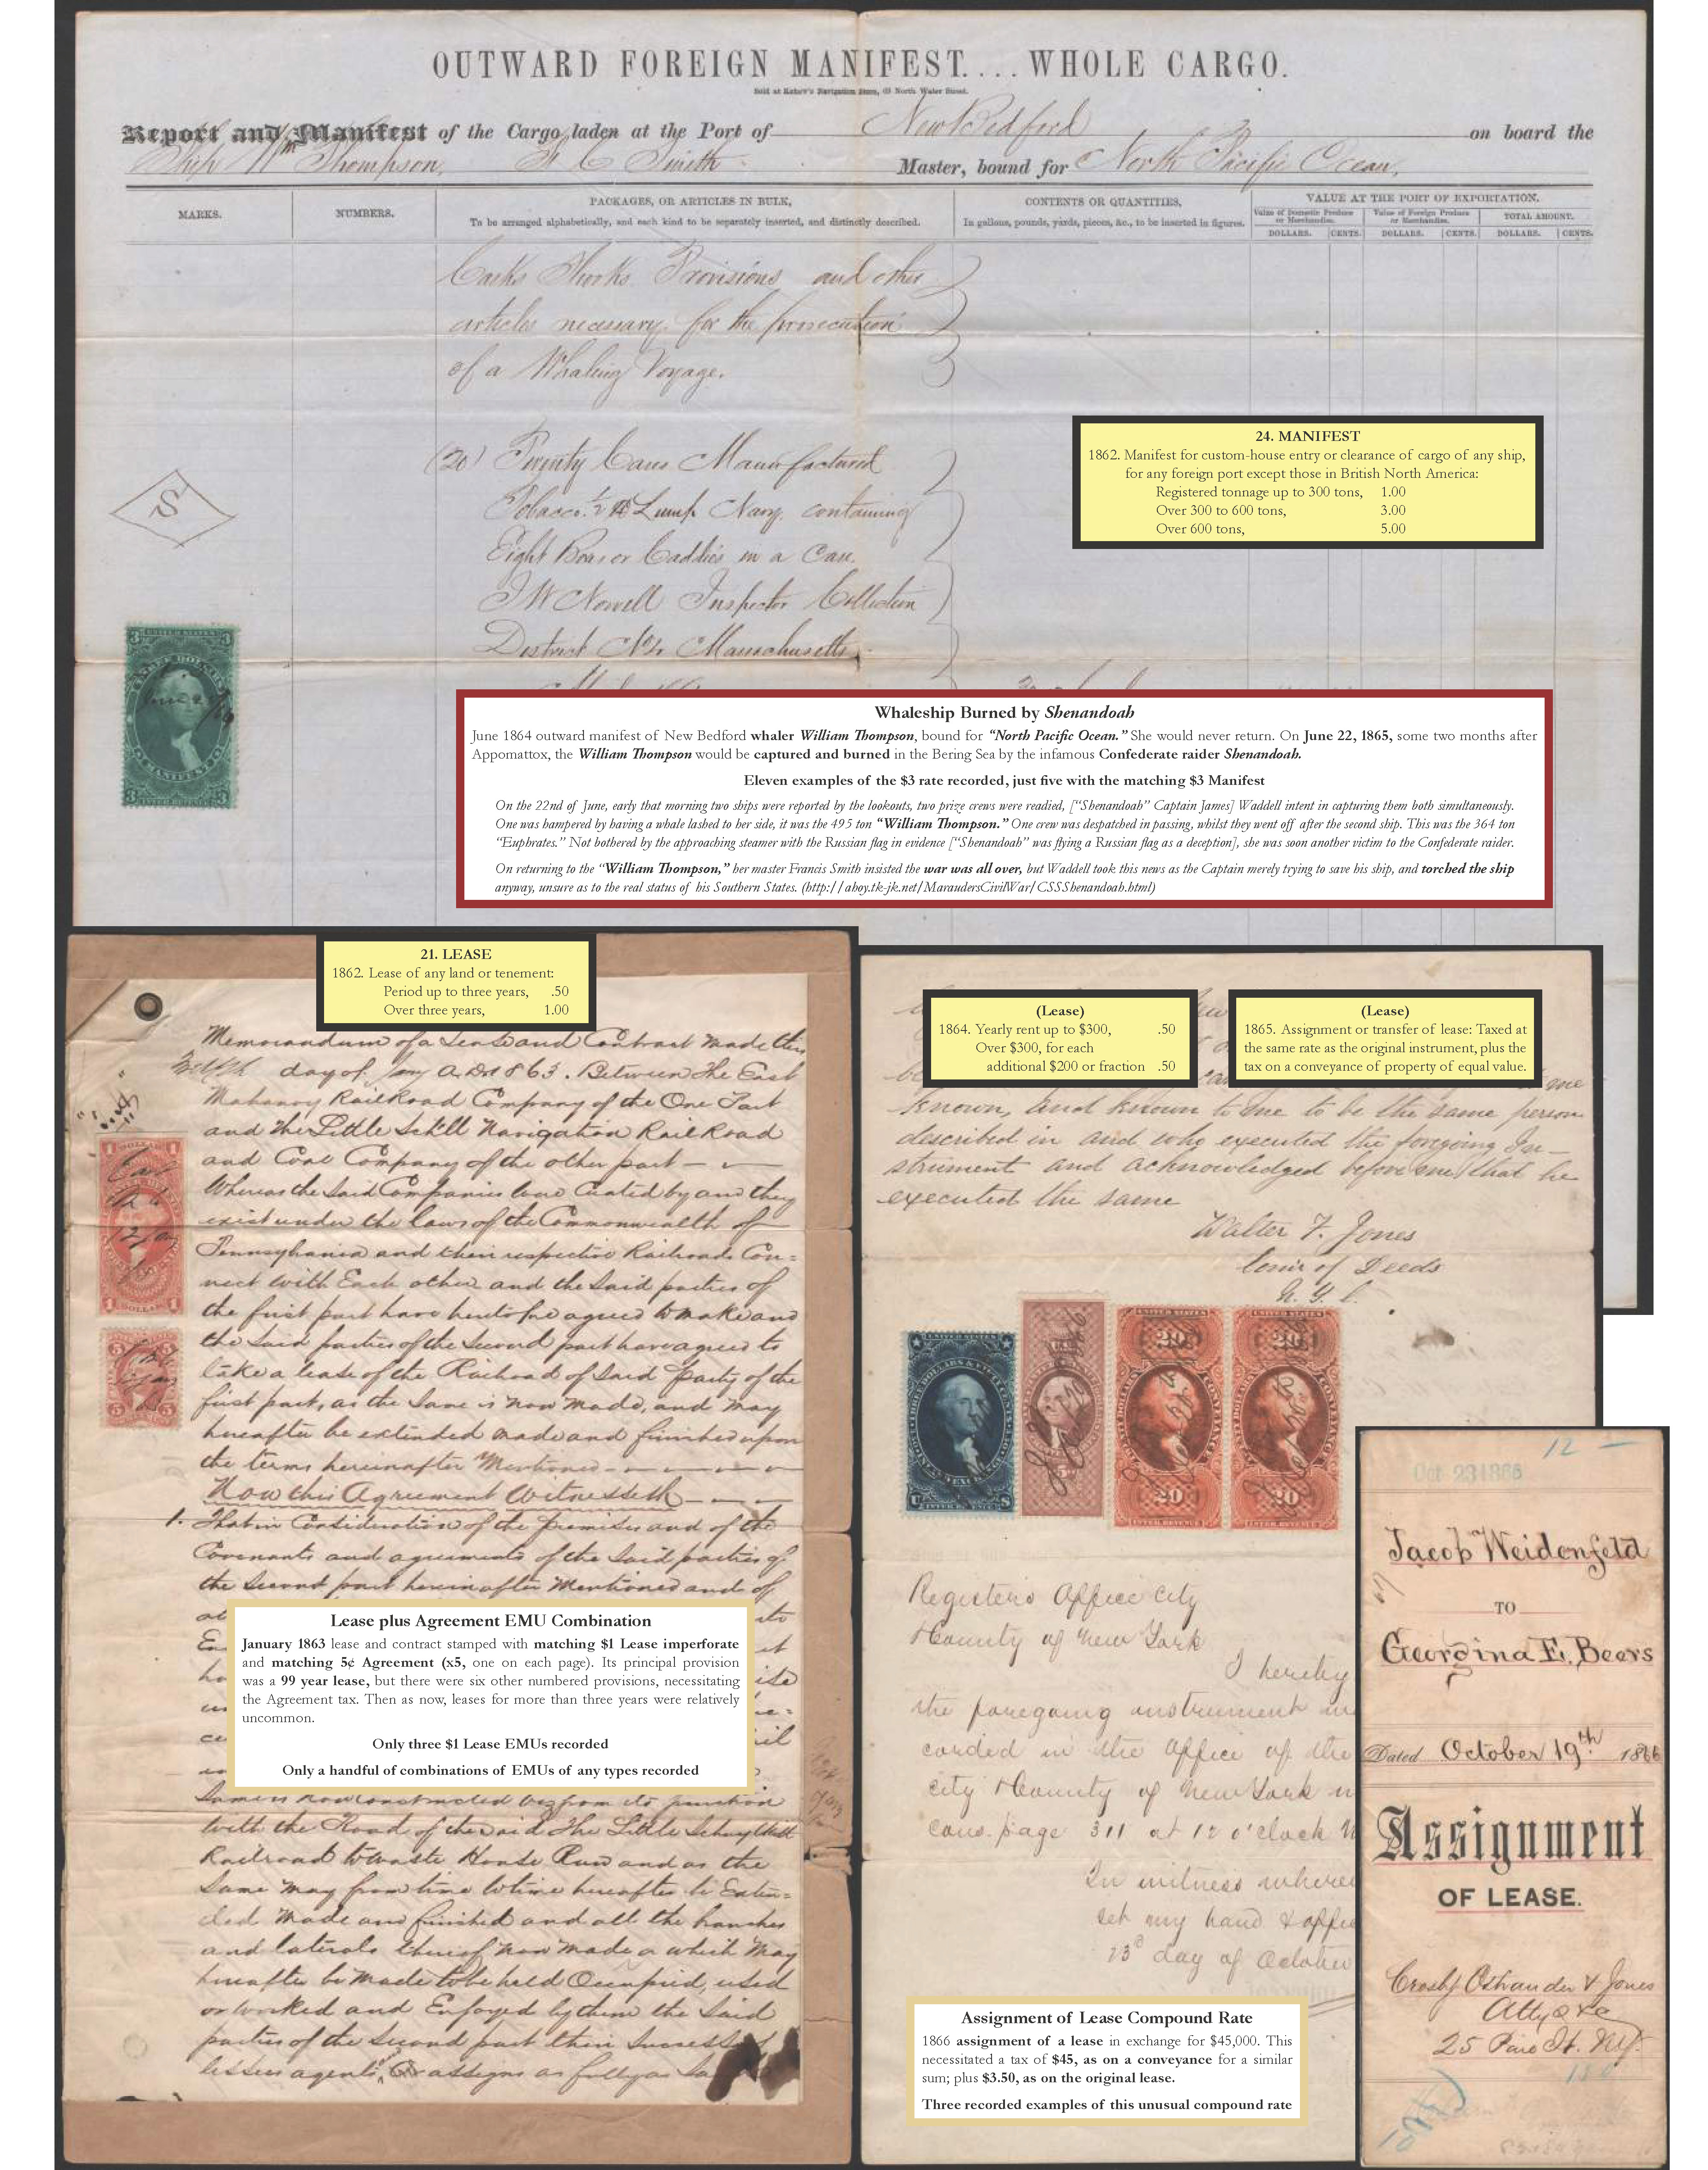 OUTWARD FOREIGN MANIFEST.... WHOLE CARGO.
Sold at Navigation Store, North Water Street.
Report and Manifest of the Cargo laden at the Port of New Bedford on board the
Ship Wm Thompson, F C Smith Master, bound for North Pacific Ocean,
MARKS.
NUMBERS.
PACKAGES, OR ARTICLES IN BULK,
To be arranged alphabetically, and each kind to be separately inserted, and distinctly described.
CONTENTS OR QUANTITIES,
In gallons, pounds, yards, pieces, &c., to be inserted in figures.
VALUE AT THE PORT OF EXPORTATION.
Value of Domestic Produce or Merchandise.
Value of Foreign Produce or Merchandise.
TOTAL AMOUNT.
DOLLARS. CENTS. DOLLARS. CENTS. DOLLARS. CENTS.
Casks Shooks Provisions and other
articles necessary for the prosecution
of a Whaling Voyage.
(20) Twenty Cases Manufactured
Tobacco ½ lb Lump Navy containing
Eight Boxes or Caddies in a Case.
Inspector Collection
District No 1 Massachusetts
S
24. MANIFEST
1862. Manifest for custom-house entry or clearance of cargo of any ship,
for any foreign port except those in British North America:
Registered tonnage up to 300 tons, 1.00
Over 300 to 600 tons, 3.00
Over 600 tons, 5.00
Whaleship Burned by Shenandoah
June 1864 outward manifest of New Bedford whaler William Thompson, bound for “North Pacific Ocean.” She would never return. On June 22, 1865, some two months after
Appomattox, the William Thompson would be captured and burned in the Bering Sea by the infamous Confederate raider Shenandoah.
Eleven examples of the $3 rate recorded, just five with the matching $3 Manifest
On the 22nd of June, early that morning two ships were reported by the lookouts, two prize crews were readied, [“Shenandoah” Captain James] Waddell intent in capturing them both simultaneously.
One was hampered by having a whale lashed to her side, it was the 495 ton “William Thompson.” One crew was despatched in passing, whilst they went off after the second ship. This was the 364 ton
“Euphrates.” Not bothered by the approaching steamer with the Russian flag in evidence [“Shenandoah” was flying a Russian flag as a deception], she was soon another victim to the Confederate raider.
On returning to the “William Thompson,” her master Francis Smith insisted the war was all over, but Waddell took this news as the Captain merely trying to save his ship, and torched the ship
anyway, unsure as to the real status of his Southern States. (http://ahoy.tk-jk.net/MaraudersCivilWar/CSSShenandoah.html)
21. LEASE
1862. Lease of any land or tenement:
Period up to three years, .50
Over three years, 1.00
Memorandum of a Lease and Contract made this
Twelfth day of Jany A.D. 1863. Between The East
Mahanoy Rail Road Company of the One Part
and The Little Schll Navigation Rail Road
and Coal Company of the other part
Whereas the said Companies were Created by and they
exist under the laws of the Commonwealth of
Pennsylvania and their respective Railroads Con=
nect with Each other and the said parties of
the first part have heretofore agreed to make and
the said parties of the Second part have agreed to
take a lease of the Railroad of said Party of the
first part, as the same is now made, and may
hereafter be extended made and finished upon
the terms hereinafter Mentioned
Now this Agreement Witnesseth
1. That in Consideration of the premises and of the
Covenants and agreements of the said parties of
the second part hereinafter Mentioned and of
Lease plus Agreement EMU Combination
January 1863 lease and contract stamped with matching $1 Lease imperforate
and matching 5¢ Agreement (x5, one on each page). Its principal provision
was a 99 year lease, but there were six other numbered provisions, necessitating
the Agreement tax. Then as now, leases for more than three years were relatively
uncommon.
Only three $1 Lease EMUs recorded
Only a handful of combinations of EMUs of any types recorded
same is now constructed viz from its junction
with the Road of the said The Little Schuylkill
Railroad to Waste House Run and as the
same may from time to time hereafter be Exten=
ded made and finished and all the branches
and laterals thereof now made or which may
hereafter be made to be held Occupied, used
or worked and Enjoyed by them the said
parties of the second part their Successors
lessees agents, Or assigns as fully as
(Lease)
1864. Yearly rent up to $300, .50
Over $300, for each
additional $200 or fraction .50
(Lease)
1865. Assignment or transfer of lease: Taxed at
the same rate as the original instrument, plus the
tax on a conveyance of property of equal value.
me
known, and known to me to be the same person
described in and who executed the foregoing In-
strument and acknowledged before me that he
executed the same
Walter F. Jones
Comr of Deeds
N.Y.C.
Registers Office City
& County of New York
I hereby
the foregoing instrument
corded in the office of the
city & County of New York
cons. page 311 at 12 o'clock
In witness where
set my hand & offic
23d day of October
Assignment of Lease Compound Rate
1866 assignment of a lease in exchange for $45,000. This
necessitated a tax of $45, as on a conveyance for a similar
sum; plus $3.50, as on the original lease.
Three recorded examples of this unusual compound rate
12
Oct 23 1866
Jacob Weidenfeld
TO
Georgina E. Beers
Dated October 19th 1866
Assignment
OF LEASE.
Crosby Ostrander & Jones
Attys &c